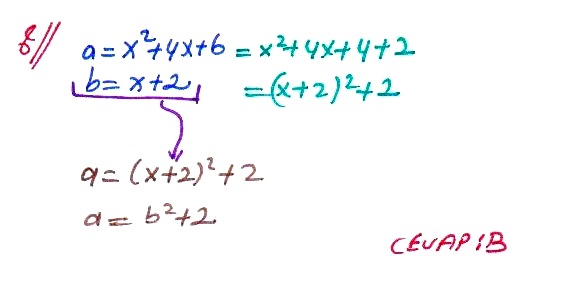 8// a = x²+4x+6 = x²+4x+4+2
b = x+2 = (x+2)²+2
a = (x+2)²+2
a = b²+2
CEVAP:B